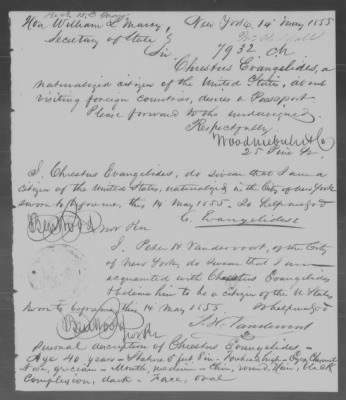 Hon William L Marcy, New York, 14 May 1855
Secretary of State
Sir 7932
Chrestus Evangelides, a
naturalized citizen of the United States, about
visiting foreign countries, desires a Passport
Please forward to the undersigned
Respectfully
25 Pine St.
I, Chrestus Evangelides, do swear that I am a
citizen of the United States, naturalized in the City of New York
sworn to before me, this 14 May 1855. So help me God
C. Evangelides
I, Peter H Vandervoort, of the City
of New York, do swear that I am
acquainted with Chrestus Evangelides
& believe him to be a citizen of the U States
sworn to before me this 14 May 1855. So help me God
Personal description of Chrestus Evangelides -
Age 40 years - Stature 5 feet 8 in - Forehead high - Eyes, Chesnut
Nose, grecian - Mouth, medium - Chin, round, Hair, black
Complexion, dark - Face, oval